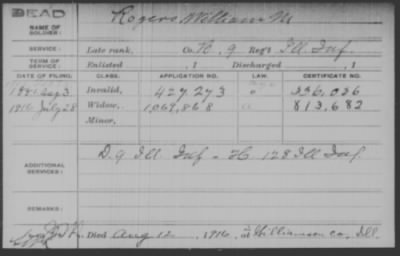 DEAD
NAME OF SOLDIER: Rogers, William M.
SERVICE: Late rank, Co. H, 9 Reg't Ill. Inf.
TERM OF SERVICE: Enlisted , 1 Discharged , 1
DATE OF FILING. CLASS. APPLICATION NO. LAW. CERTIFICATE NO.
Aug 3 Invalid, 427,273 336,036
1916 July 28 Widow, 1,069,868 813,682
Minor,
ADDITIONAL SERVICES: D. 9 Ill. Inf. - H. 128 Ill Inf.
REMARKS:
Died Aug 12, 1916, at Williamson Co., Ill.